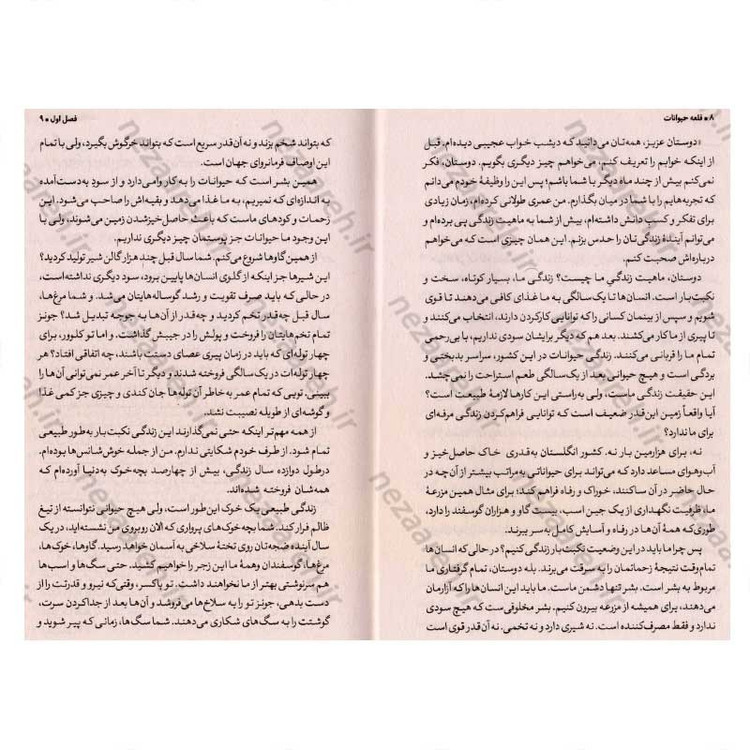 ۸ * قلعه حیوانات
«دوستان عزیز، همه‌تان می‌دانید که دیشب خواب عجیبی دیده‌ام، قبل
از اینکه خوابم را تعریف کنم، می‌خواهم چیز دیگری بگویم. دوستان، فکر
نمی‌کنم بیش از چند ماه دیگر با شما باشم؛ پس این را وظیفهٔ خودم می‌دانم
که تجربه‌هایم را با شما در میان بگذارم. من عمری طولانی کرده‌ام، زمان زیادی
برای تفکر و کسب دانش داشته‌ام، بیش از شما به ماهیت زندگی پی برده‌ام و
می‌توانم آیندهٔ زندگی‌تان را حدس بزنم. این همان چیزی است که می‌خواهم
درباره‌اش صحبت کنم.
دوستان، ماهیت زندگیِ ما چیست؟ زندگی ما، بسیار کوتاه، سخت و
نکبت‌بار است. انسان‌ها تا یک‌سالگی به ما غذای کافی می‌دهند تا قوی
شویم و سپس از بینمان کسانی را که توانایی کارکردن دارند، انتخاب می‌کنند و
تا پیری از ما کار می‌کشند. بعد هم که دیگر برایشان سودی نداریم، با بی‌رحمی
تمام ما را قربانی می‌کنند. زندگی حیوانات در این کشور، سراسر بدبختی و
بردگی است و هیچ حیوانی بعد از یک‌سالگی طعم استراحت را نمی‌چشد.
این حقیقت زندگی ماست، ولی به‌راستی این کارها لازمهٔ طبیعت است؟
آیا واقعاً زمین این‌قدر ضعیف است که توانایی فراهم‌کردن زندگی مرفه‌ای
برای ما ندارد؟
نه، برای هزارمین بار نه. کشور انگلستان به‌قدری خاک حاصل‌خیز و
آب‌وهوای مساعد دارد که می‌تواند برای حیواناتی به‌مراتب بیشتر از آن‌چه در
حال حاضر در آن ساکنند، خوراک و رفاه فراهم کند؛ برای مثال همین مزرعهٔ
ما، ظرفیت نگهداری از یک جین اسب، بیست گاو و هزاران گوسفند را دارد،
طوری‌که همهٔ آن‌ها در رفاه و آسایش کامل به‌سر ببرند.
پس چرا ما باید در این وضعیت نکبت‌بار زندگی کنیم؟ در حالی که انسان‌ها
تمام‌وقت نتیجهٔ زحماتمان را به سرقت می‌برند. بله دوستان، تمام گرفتاری ما
مربوط به بشر است. بشر تنها دشمن ماست. ما باید این انسان‌ها را که آزارمان
می‌دهند، برای همیشه از مزرعه بیرون کنیم. بشر مخلوقی ست که هیچ سودی
ندارد و فقط مصرف‌کننده است. نه شیری دارد و نه تخمی. نه آن‌قدر قوی است
فصل اول * ۹
که بتواند شخم بزند و نه آن‌قدر سریع است که بتواند خرگوش بگیرد، ولی با تمام
این اوصاف فرمانروای جهان است.
همین بشر است که حیوانات را به کار وامی‌دارد و از سود به‌دست‌آمده
به اندازه‌ای که نمیریم، به ما غذا می‌دهد و بقیه‌اش را صاحب می‌شود. این
زحمات و کودهای ماست که باعث حاصل‌خیزشدن زمین می‌شوند، ولی با
این وجود ما حیوانات جز پوستمان چیز دیگری نداریم.
از همین گاوها شروع می‌کنم. شما سال قبل چند هزار گالن شیر تولید کردید؟
این شیرها جز اینکه از گلوی انسان‌ها پایین برود، سود دیگری نداشته است،
در حالی که باید صرف تقویت و رشد گوساله‌هایتان می‌شد. و شما مرغ‌ها،
سال قبل چه‌قدر تخم کردید و چه‌قدر از آن‌ها به جوجه تبدیل شد؟ جونز
تمام تخم‌هایتان را فروخت و پولش را در جیبش گذاشت. و اما تو کلوور، برای
چهار توله‌ای که باید در زمان پیری عصای دستت باشند، چه اتفاقی افتاد؟ هر
چهار توله‌ات در یک سالگی فروخته شدند و دیگر تا آخر عمر نمی‌توانی آن‌ها را
ببینی. تویی که تمام عمر به خاطر آن توله‌ها جان کندی و چیزی جز کمی غذا
و گوشه‌ای از طویله نصیبت نشد.
از همه مهم‌تر اینکه حتی نمی‌گذارند این زندگی نکبت‌بار به‌طور طبیعی
تمام شود. از طرف خودم شکایتی ندارم. من از جمله خوش‌شانس‌ها بوده‌ام.
درطول دوازده سال زندگی، بیش از چهارصد بچه‌خوک به‌دنیا آورده‌ام که
همه‌شان فروخته شده‌اند.
زندگی طبیعی یک خوک این‌طور است، ولی هیچ حیوانی نتوانسته از تیغ
ظالم فرار کند. شما بچه‌خوک‌های پرواری که الان روبروی من نشسته‌اید، در یک
سال آینده ضجه‌تان روی تختهٔ سلاخی به آسمان خواهد رسید. گاوها، خوک‌ها،
مرغ‌ها، گوسفندان وهمهٔ ما این زجر را خواهیم کشید. حتی سگ‌ها و اسب‌ها
هم سرنوشتی بهتر از ما نخواهند داشت. تو باکسر، وقتی‌که نیرو و قدرتت را از
دست بدهی، جونز تو را به سلاخ‌ها می‌فروشد و آن‌ها بعد از جداکردن سرت،
گوشتت را به سگ‌های شکاری می‌دهند. شما سگ‌ها، زمانی که پیر شوید و
nezaareh.ir